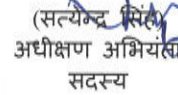 (सत्येन्द्र सिंह)
अधीक्षण अभियंता
सदस्य